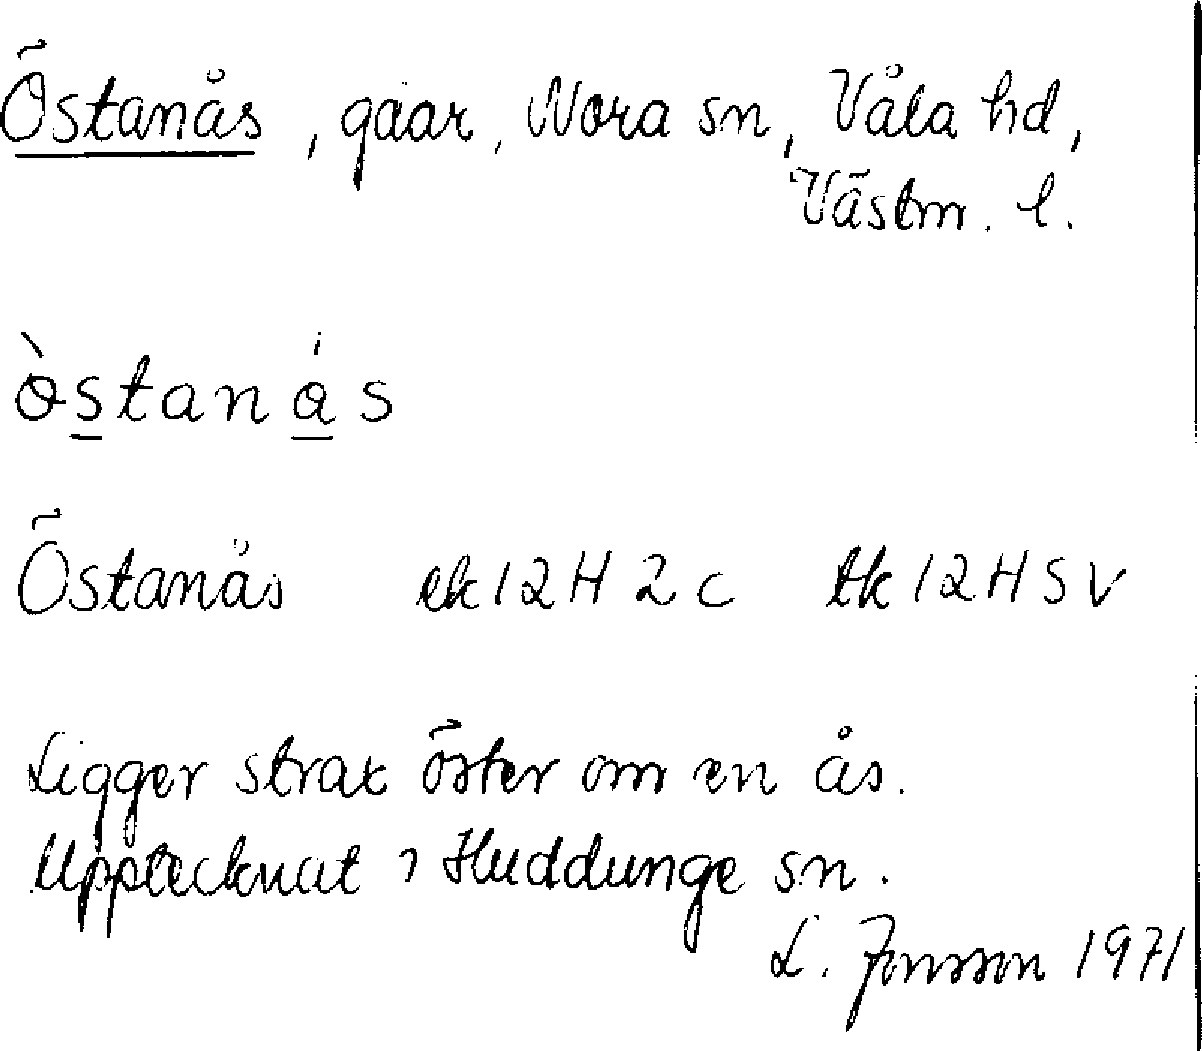 Östanås, gåar, Nora sn, Våla hd,
Västm. l.
ò̱staná̱s
Östanås ek 12H 2c tk 12H SV
Ligger strax öster om en ås.
Upptecknat i Huddunge sn.
L. Jonsson 1971